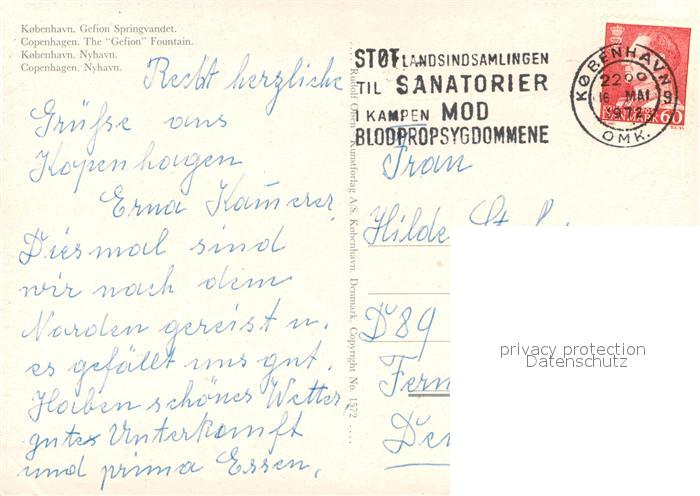 København. Gefion Springvandet.
Copenhagen. The "Gefion" Fountain.
København. Nyhavn.
Copenhagen. Nyhavn.
Recht herzliche
Grüße aus
Kopenhagen
Erna Kamerer
Diesmal sind
wir nach dem
Norden gereist u.
es gefällt uns gut.
Haben schönes Wetter,
gutes Unterkonft
und prima Essen,
Rudolf Olsens Kunstforlag A/S. København. Denmark. Copyright No. 1572
STØT LANDSINDSAMLINGEN
TIL SANATORIER
I KAMPEN MOD
BLODPROPSYGDOMMENE
KØBENHAVN
2200
16 MAI 9
1972
OMK.
DANMARK 60
Fran
Hilde
D 89
privacy protection
Datenschutz